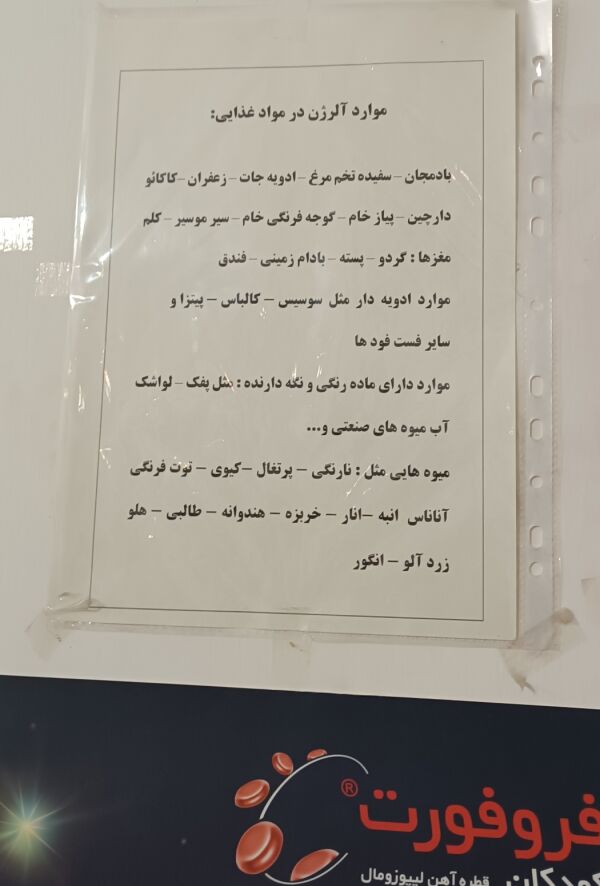 موارد آلرژن در مواد غذایی:
بادمجان – سفیده تخم مرغ – ادویه جات – زعفران – کاکائو
دارچین – پیاز خام – گوجه فرنگی خام – سیر موسیر – کلم
مغزها : گردو – پسته – بادام زمینی – فندق
موارد ادویه دار مثل سوسیس – کالباس – پیتزا و
سایر فست فود ها
موارد دارای ماده رنگی و نگه دارنده : مثل پفک – لواشک
آب میوه های صنعتی و...
میوه هایی مثل : نارنگی – پرتغال – کیوی – توت فرنگی
آناناس انبه – انار – خربزه – هندوانه – طالبی – هلو
زرد آلو – انگور
فروفورت®
کودکان قطره آهن لیپوزومال